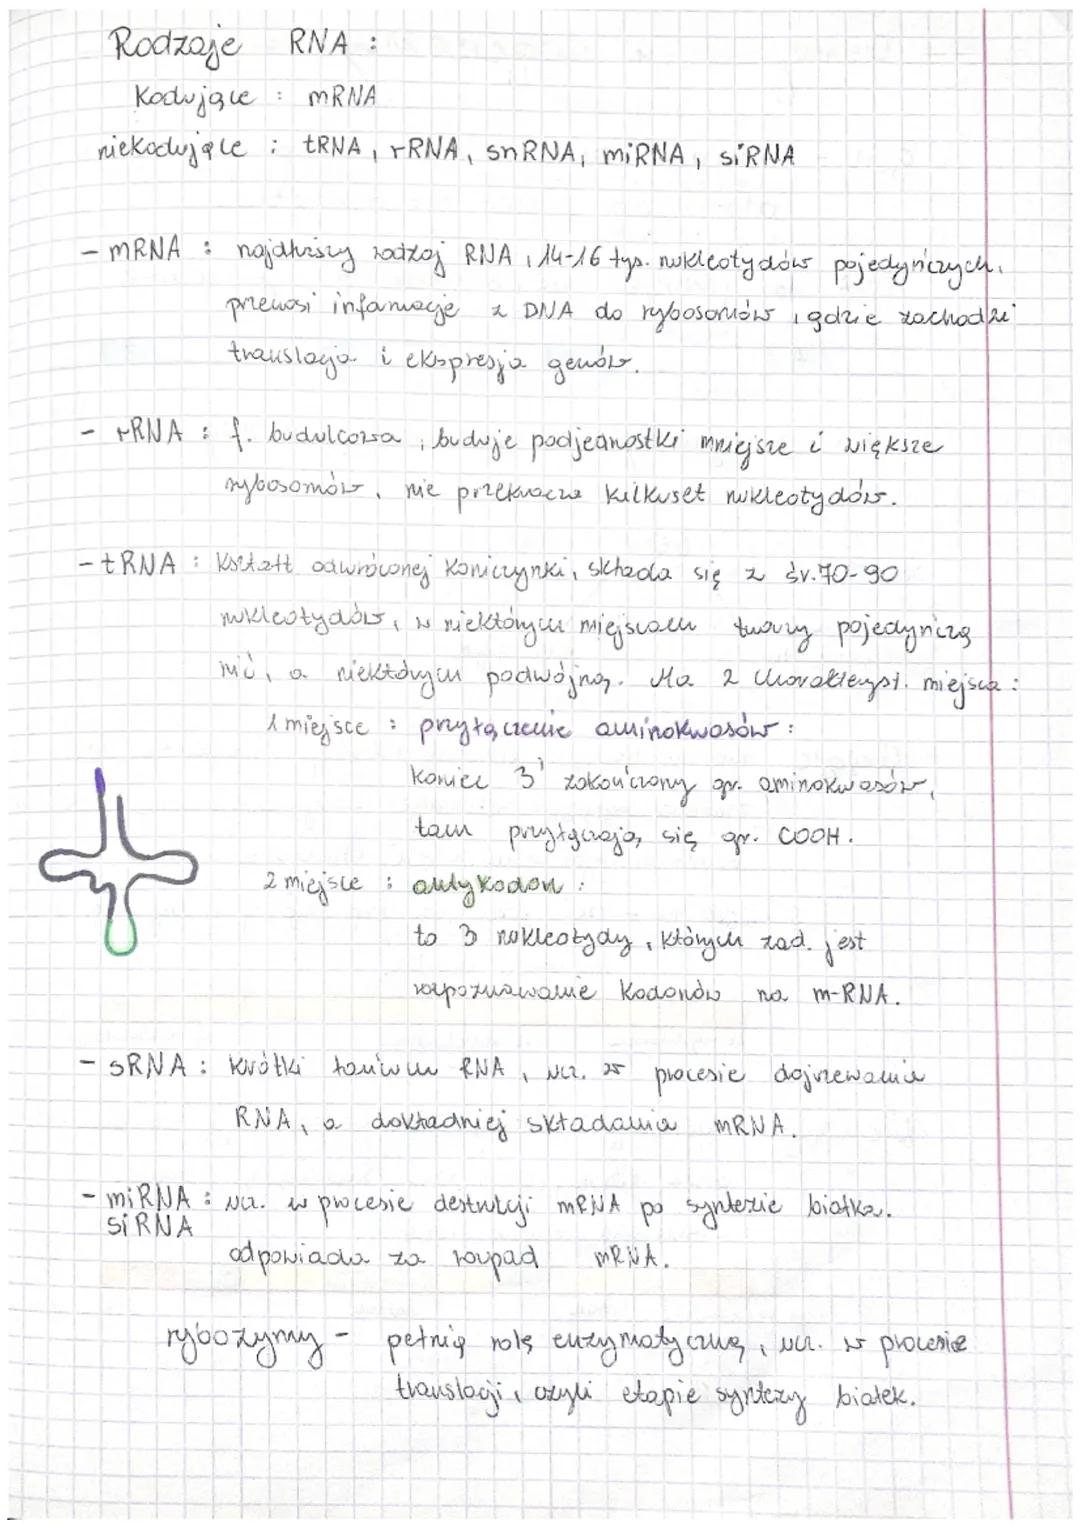 Rodzaje RNA :
Kodujące : mRNA
niekodujące : tRNA, rRNA, snRNA, miRNA, siRNA
- mRNA : najdłuższy rodzaj RNA, 14-16 tys. nukleotydów pojedyńczych,
przenosi informacje z DNA do rybosomów, gdzie zachodzi
translacja i ekspresja genów.
- rRNA : f. budulcowa, buduje podjednostki mniejsze i większe
rybosomów, nie przekracza kilkuset nukleotydów.
- tRNA : Kształt odwróconej Koniczynki, składa się z śr. 70-90
nukleotydów, w niektórych miejscach tworzy pojedyńczą
nić, a niektórych podwójną. Ma 2 charakteryst. miejsca :
1 miejsce : przyłączenie aminokwasów :
Koniec 3' zakończony gr. aminokwasów,
tam przyłączają się gr. COOH.
2 miejsce : antykodon :
to 3 nukleotydy, których zad. jest
rozpoznawanie Kodonów na m-RNA.
- sRNA : krótki RNA, ucz. w procesie dojrzewania
RNA, a dokładniej składania mRNA.
- miRNA : ucz. w procesie destrukcji mRNA po syntezie białka.
siRNA
odpowiada za rozpad mRNA.
rybozymy - pełnią rolę enzymatyczną, ucz. w procesie
translacji, czyli etapie syntezy białek.